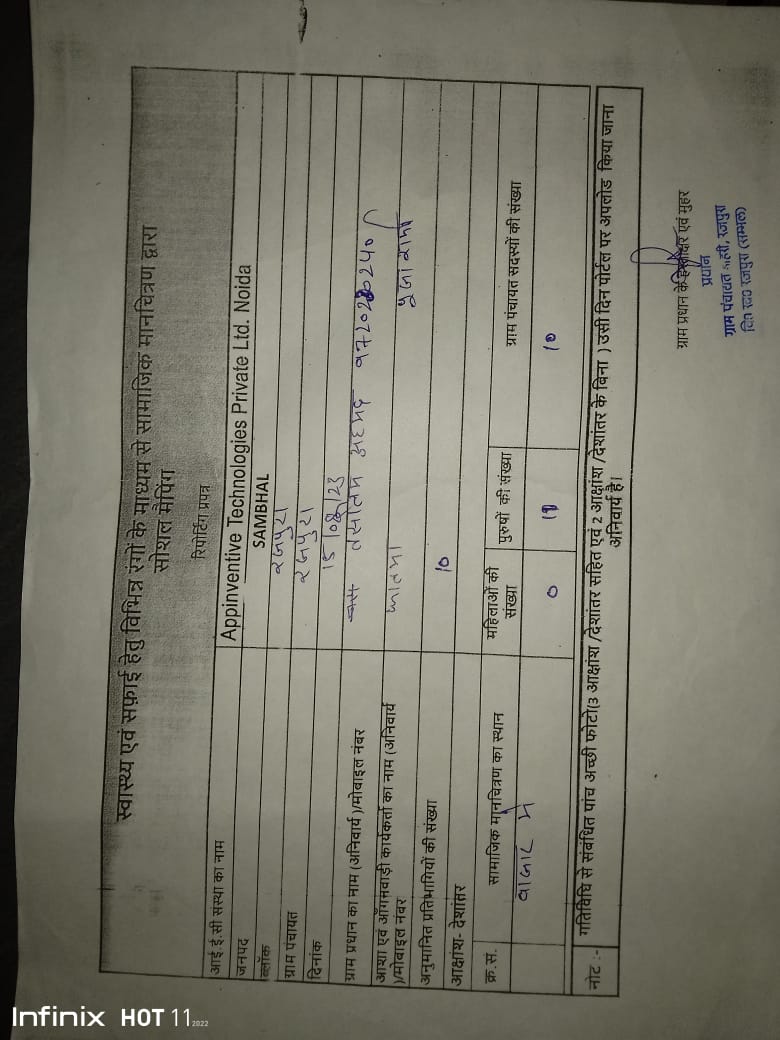 स्वास्थ्य एवं सफ़ाई हेतु विभिन्न रंगों के माध्यम से सामाजिक मानचित्रण द्वारा
सोशल मैपिंग
रिपोर्टिंग प्रपत्र
आई.ई.सी संस्था का नाम Appinventive Technologies Private Ltd. Noida
जनपद SAMBHAL
ब्लॉक रजपुरा
ग्राम पंचायत रजपुरा
दिनांक 15/08/23
ग्राम प्रधान का नाम (अनिवार्य )/मोबाइल नंबर अहमद
आशा एवं आँगनवाड़ी कार्यकर्ता का नाम (अनिवार्य
)/मोबाइल नंबर
अनुमानित प्रतिभागियों की संख्या 10
आक्षांश- देशांतर
क्र.स. सामाजिक मानचित्रण का स्थान महिलाओं की संख्या पुरुषों की संख्या ग्राम पंचायत सदस्यों की संख्या
बाजार में 0 10
नोट :- गतिविधि से संबंधित पांच अच्छी फोटो(3 आक्षांश /देशांतर सहित एवं 2 आक्षांश /देशांतर के बिना ) उसी दिन पोर्टल पर अपलोड किया जाना
अनिवार्य है।
ग्राम प्रधान के हस्ताक्षर एवं मुहर
प्रधान
ग्राम पंचायत रजपुरा
रजपुरा (सम्भल)
Infinix HOT 11 2022